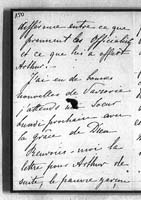 150
différence entre ce que
prennent les Officiels
et ce que lui a offert
Arthur.
J'ai eu de bonnes
nouvelles de Varsovie
j'attends ma Soeur
lundi prochain avec
la grâce de Dieu
Renvoies-moi la
lettre pour Arthur de
suite, le pauvre garçon